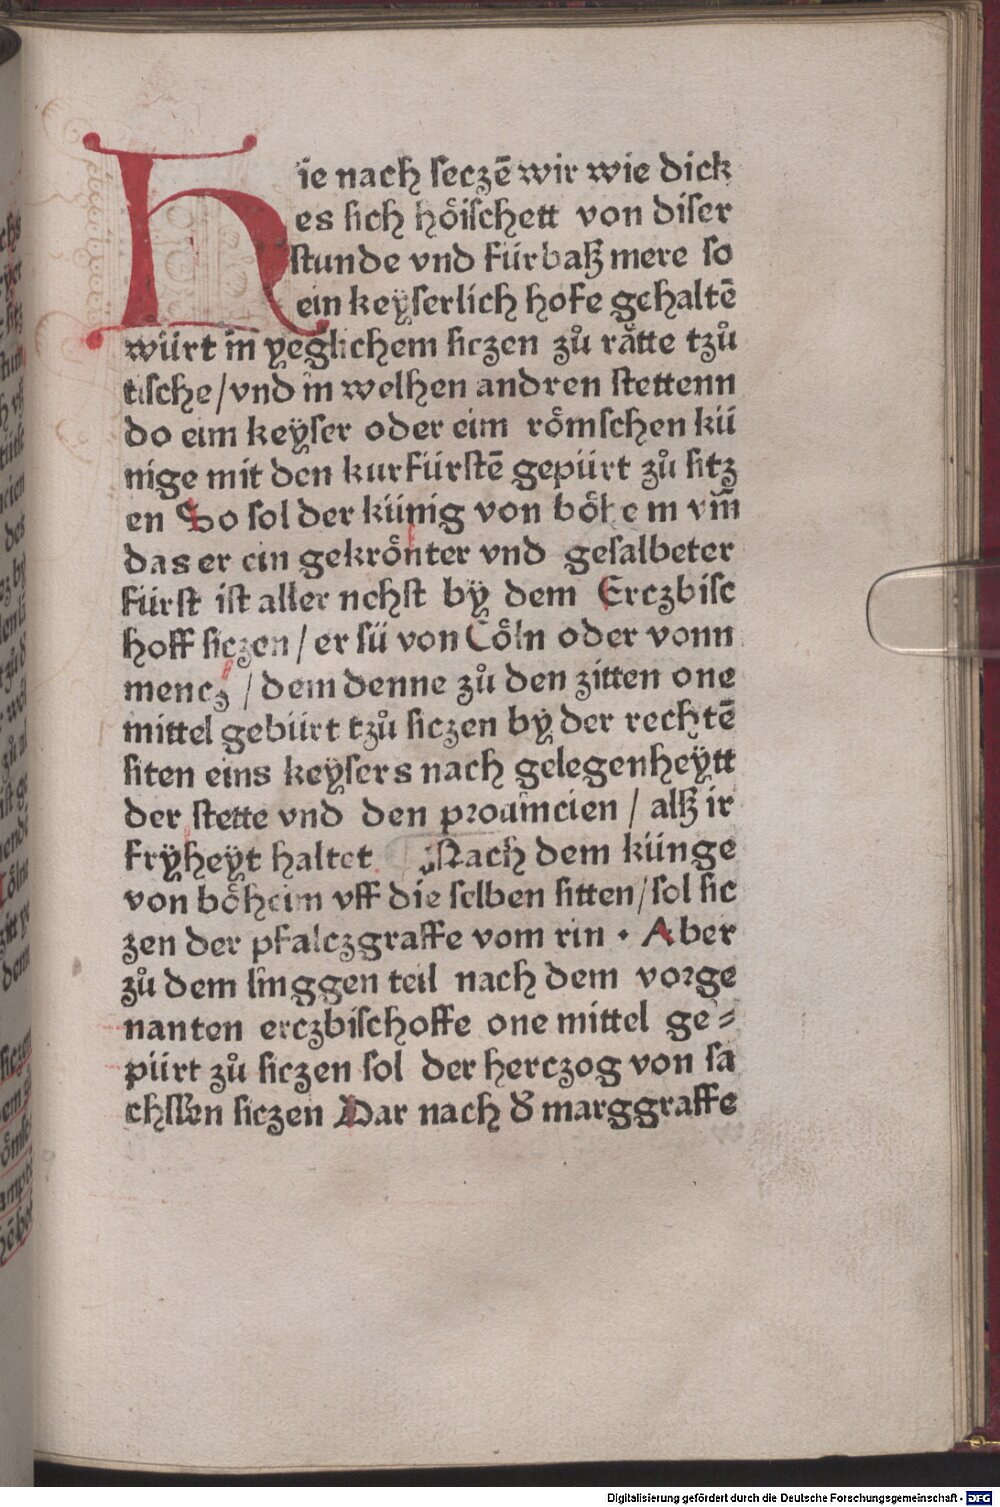 Hie nach ſeczē wir wie dick
es ſich höiſchett von diſer
ſtunde vnd fürbaß mere ſo
ein keÿſerlich hofe gehaltē
würt in yeglichem ſiczen zů råtte tzů
tiſche/vnd in welhen andren ſtettenn
do eim keÿſer oder eim römſchen kü
nige mit den kurfürſtē gepürt zů ſitz
en So ſol der künig von böhem vm̄
das er ein gekrönter vnd geſalbeter
fürſt iſt aller nehſt bÿ dem Erczbiſc
hoff ſiczen/er ſü von Cöln oder vonn
mencz /dem denne zů den zitten one
mittel gebürt tzů ſiczen bÿ der rechtē
ſiten eins keÿſers nach gelegenheÿtt
der ſtette vnd den prouincien / alß ir
frÿheÿt haltet Nach dem künge
von böheim vff die ſelben ſitten/ſol ſic
zen der pfalczgraffe vom rin · Aber
zů dem linggen teil nach dem vorge
nanten erczbiſchoffe one mittel ge⸗
pürt zů ſiczen ſol der herczog von ſa
chſſen ſiczen Dar nach ð marggraffe
Digitalisierung gefördert durch die Deutsche Forschungsgemeinschaft - DFG